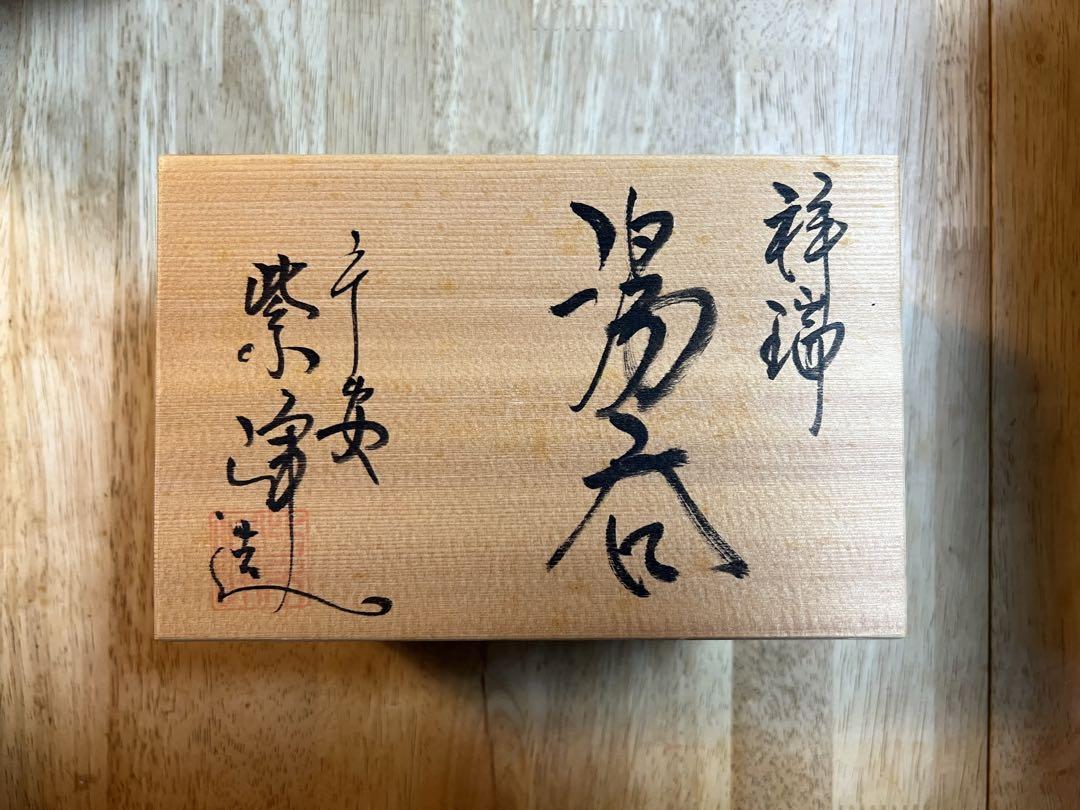 祥瑞
湯呑
平安
紫峰造